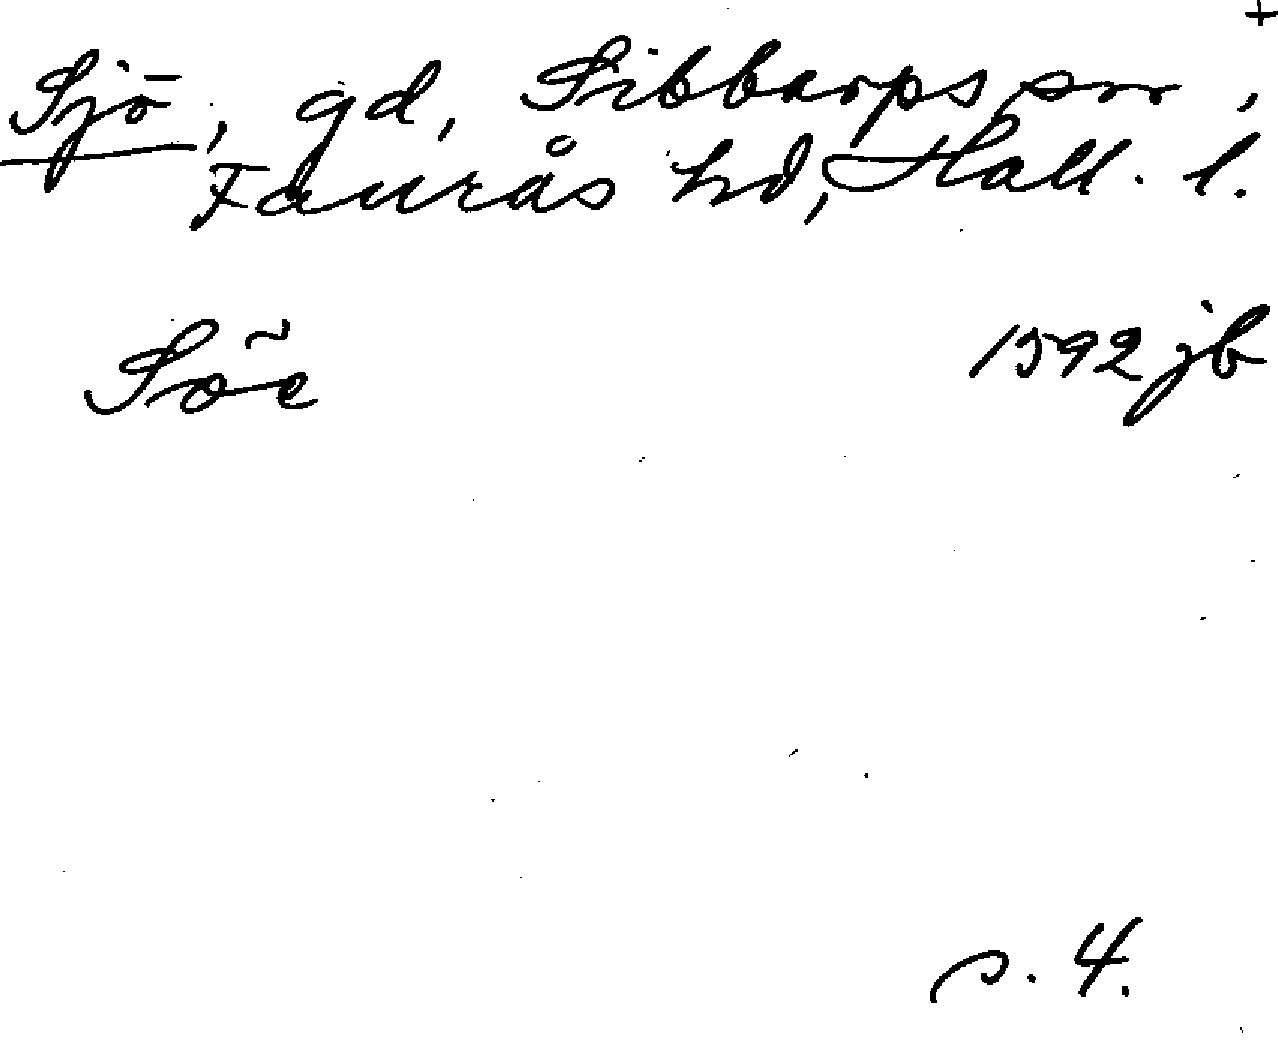 +
Sjö, gd, Sibbarps sn,
Faurås hd, Hall. l.
Söe 1592 jb
s. 4.